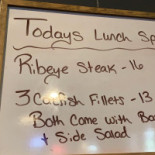 Todays Lunch Sp
Ribeye Steak - 16
3 Catfish Fillets - 13
Both Come with Ba
+ Side Salad